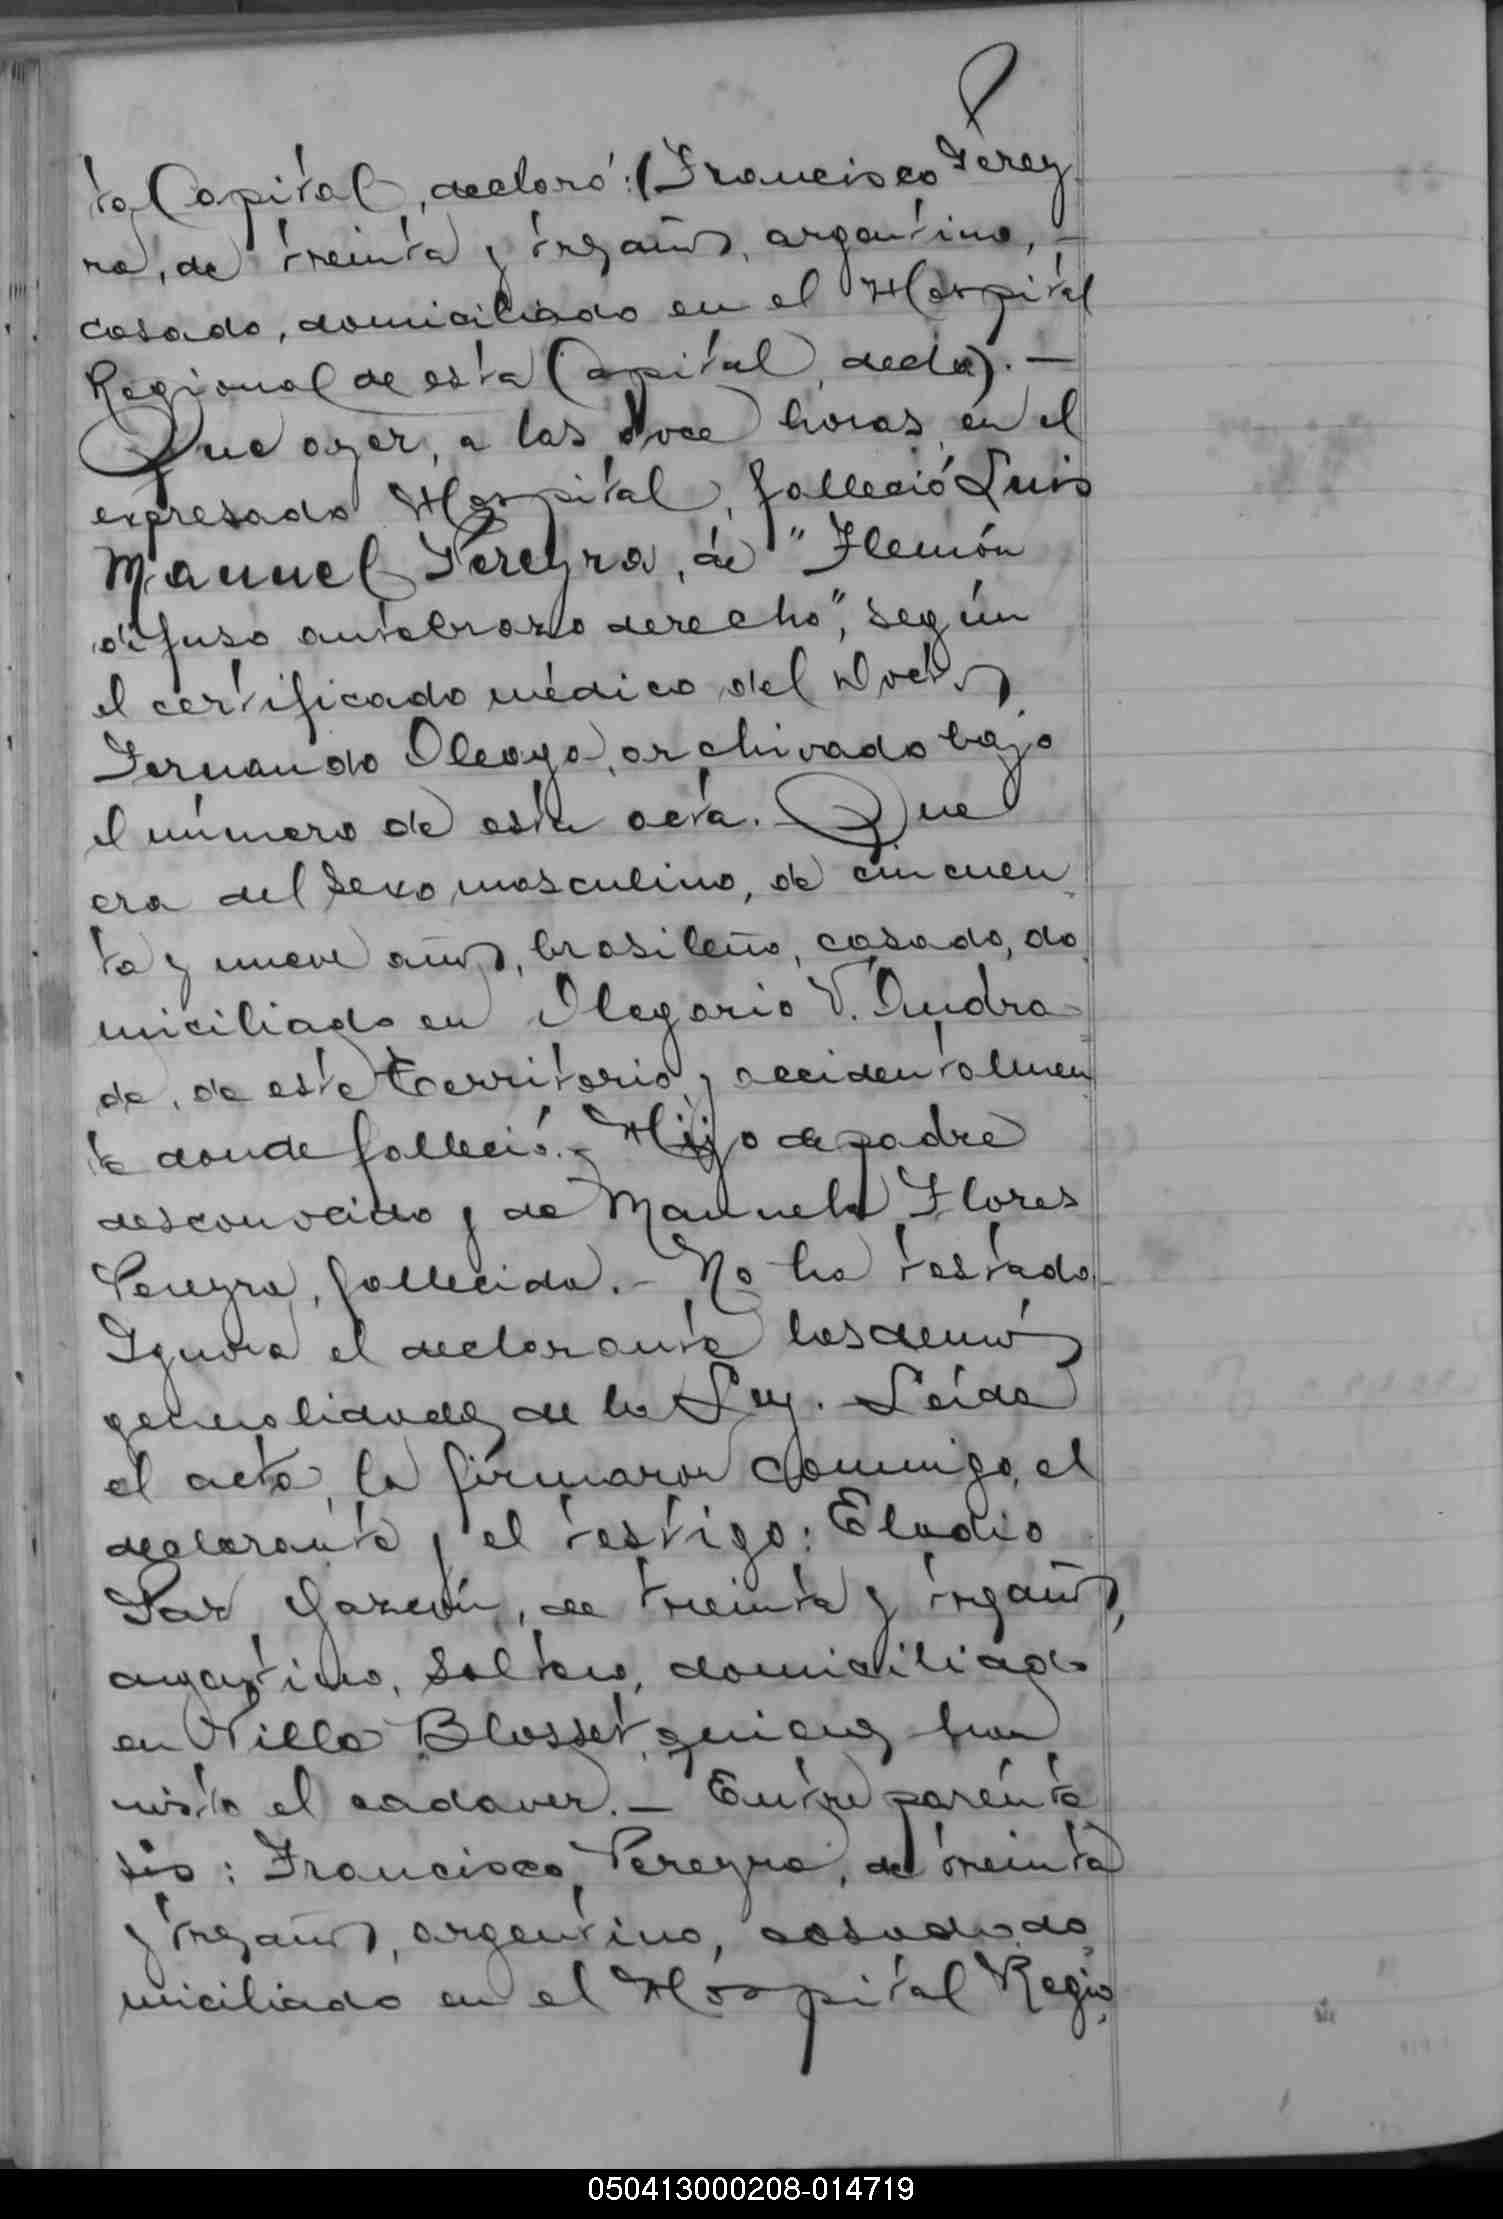 ta Capital, declaró: (Francisco Perey
ra, de treinta y tres años, argentino, —
casado, domiciliado en el Hospital
Regional de esta Capital, decla). —
Que ayer, a las doce horas, en el
expresado Hospital, falleció Luis
Manuel Pereyra, de "Flemón
difuso antebrazo derecho", según
el certificado médico del Doctor
Fernando Oleaga, archivado bajo
el número de esta acta. Que
era del sexo masculino, de cincuen
ta y nueve años, brasileño, casado, do
miciliado en Olegario V. Andra
de, de este territorio y accidentalmen
te donde falleció. - Hijo de padre
desconocido y de Manuela Flores
Pereyra, fallecida. - No ha testado.
Ignora el declarante las demás
generalidades de la Ley. Leída
el acta, la firmaron conmigo, el
declarante y el testigo: Eladio
Paz Garzón, de treinta y tres años,
argentino, soltero, domiciliado
en Villa Blosset, quienes han
visto el cadaver. — Entre parénte
sis: Francisco Pereyra, de treinta
y tres años, argentino, casado, do
miciliado en el Hospital Regio
050413000208-014719